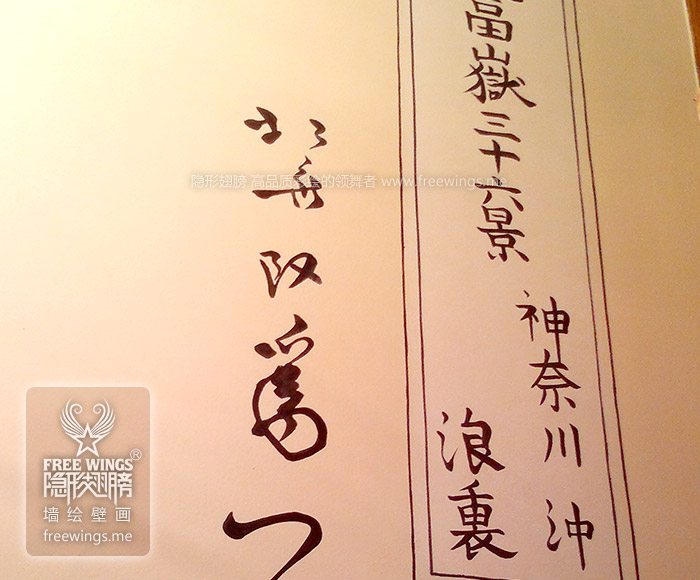 冨嶽三十六景
神奈川沖
浪裏
北斎改爲
隐形翅膀 高品质彩绘的领舞者 www.freewings.me
FREE WINGS®
隐形翅膀
墙绘壁画
freewings.me